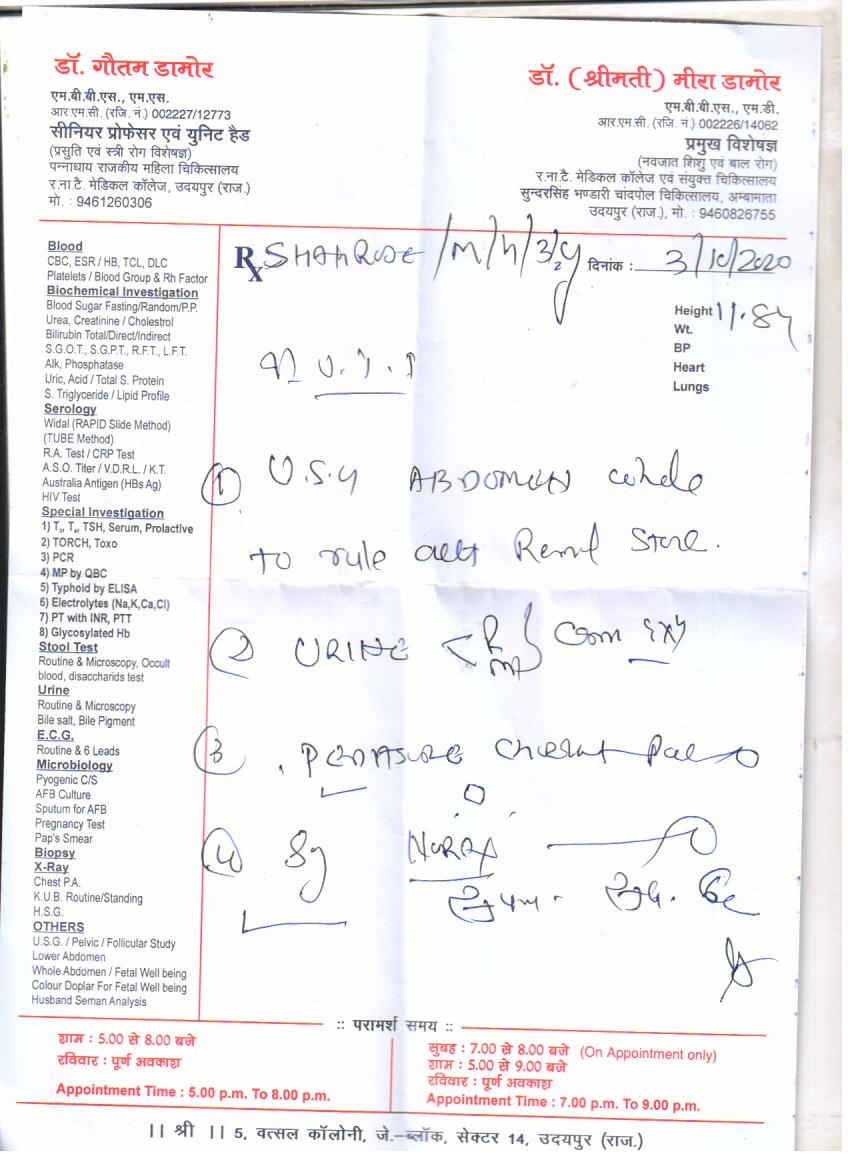 डॉ. गौतम डामोर
एम.बी.बी.एस., एम.एस.
आर.एम.सी. (रजि. नं.) 002227/12773
सीनियर प्रोफेसर एवं युनिट हैड
(प्रसुति एवं स्त्री रोग विशेषज्ञ)
पन्नाधाय राजकीय महिला चिकित्सालय
र.ना.टै. मेडिकल कॉलेज, उदयपुर (राज.)
मो. : 9461260306
डॉ. (श्रीमती) मीरा डामोर
एम.बी.बी.एस., एम.डी.
आर.एम.सी. (रजि. नं.) 002226/14062
प्रमुख विशेषज्ञ
(नवजात शिशु एवं बाल रोग)
र.ना.टै. मेडिकल कॉलेज एवं संयुक्त चिकित्सालय
सुन्दरसिंह भण्डारी चांदपोल चिकित्सालय, अम्बामाता
उदयपुर (राज.), मो. : 9460826755
Blood
CBC, ESR / HB, TCL, DLC
Platelets / Blood Group & Rh Factor
Biochemical Investigation
Blood Sugar Fasting/Random/P.P.
Urea, Creatinine / Cholestrol
Bilirubin Total/Direct/Indirect
S.G.O.T., S.G.P.T., R.F.T., L.F.T.
Alk, Phosphatase
Uric, Acid / Total S. Protein
S. Triglyceride / Lipid Profile
Serology
Widal (RAPID Slide Method)
(TUBE Method)
R.A. Test / CRP Test
A.S.O. Titer / V.D.R.L. / K.T.
Australia Antigen (HBs Ag)
HIV Test
Special Investigation
1) T₃, T₄, TSH, Serum, Prolactive
2) TORCH, Toxo
3) PCR
4) MP by QBC
5) Typhoid by ELISA
6) Electrolytes (Na,K,Ca,Cl)
7) PT with INR, PTT
8) Glycosylated Hb
Stool Test
Routine & Microscopy, Occult
blood, disaccharids test
Urine
Routine & Microscopy
Bile salt, Bile Pigment
E.C.G.
Routine & 6 Leads
Microbiology
Pyogenic C/S
AFB Culture
Sputum for AFB
Pregnancy Test
Pap's Smear
Biopsy
X-Ray
Chest P.A.
K.U.B. Routine/Standing
H.S.G.
OTHERS
U.S.G. / Pelvic / Follicular Study
Lower Abdomen
Whole Abdomen / Fetal Well being
Colour Doplar For Fetal Well being
Husband Seman Analysis
Rx SHAHROSE /M/h/3
दिनांक : 3/10/2020
Height 11.84
Wt.
BP
Heart
Lungs
U.T.I
1 U.S.G ABDOMEN whole
to rule out Renal Stone.
2 URINE < R/M
3
4 Sy
:: परामर्श समय ::
शाम : 5.00 से 8.00 बजे
रविवार : पूर्ण अवकाश
Appointment Time : 5.00 p.m. To 8.00 p.m.
सुबह : 7.00 से 8.00 बजे (On Appointment only)
शाम : 5.00 से 9.00 बजे
रविवार : पूर्ण अवकाश
Appointment Time : 7.00 p.m. To 9.00 p.m.
।। श्री ।। 5, वत्सल कॉलोनी, जे.-ब्लॉक, सेक्टर 14, उदयपुर (राज.)